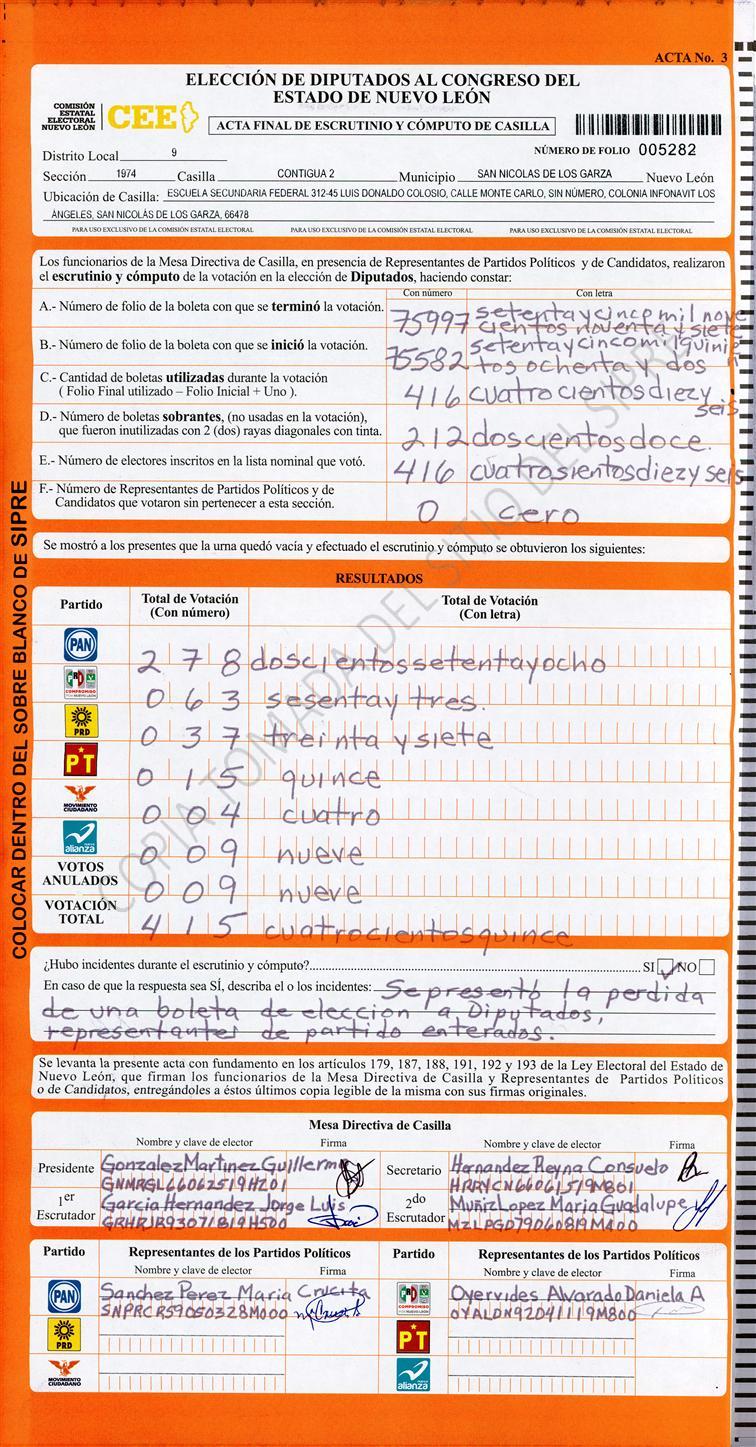 ACTA No. 3
ELECCIÓN DE DIPUTADOS AL CONGRESO DEL
ESTADO DE NUEVO LEÓN
COMISIÓN
ESTATAL
ELECTORAL
NUEVO LEÓN
CEE
ACTA FINAL DE ESCRUTINIO Y CÓMPUTO DE CASILLA
Distrito Local 9
NÚMERO DE FOLIO 005282
Sección 1974 Casilla CONTIGUA 2 Municipio SAN NICOLAS DE LOS GARZA Nuevo León
Ubicación de Casilla: ESCUELA SECUNDARIA FEDERAL 312-45 LUIS DONALDO COLOSIO, CALLE MONTE CARLO, SIN NÚMERO, COLONIA INFONAVIT LOS
ÁNGELES, SAN NICOLÁS DE LOS GARZA, 66478
PARA USO EXCLUSIVO DE LA COMISIÓN ESTATAL ELECTORAL PARA USO EXCLUSIVO DE LA COMISIÓN ESTATAL ELECTORAL PARA USO EXCLUSIVO DE LA COMISIÓN ESTATAL ELECTORAL
Los funcionarios de la Mesa Directiva de Casilla, en presencia de Representantes de Partidos Políticos y de Candidatos, realizaron
el escrutinio y cómputo de la votación en la elección de Diputados, haciendo constar:
Con número Con letra
A.- Número de folio de la boleta con que se terminó la votación. 75997 setentaycincomil nove
cientos noventa y siete
B.- Número de folio de la boleta con que se inició la votación. 75582 setentaycincomilquinien
tos ochenta y dos
C.- Cantidad de boletas utilizadas durante la votación
( Folio Final utilizado – Folio Inicial + Uno ). 416 cuatrocientosdiezy
seis
D.- Número de boletas sobrantes, (no usadas en la votación),
que fueron inutilizadas con 2 (dos) rayas diagonales con tinta. 212 doscientosdoce.
E.- Número de electores inscritos en la lista nominal que votó. 416 cuatrosientosdiezy seis
F.- Número de Representantes de Partidos Políticos y de
Candidatos que votaron sin pertenecer a esta sección. 0 cero
Se mostró a los presentes que la urna quedó vacía y efectuado el escrutinio y cómputo se obtuvieron los siguientes:
RESULTADOS
Partido Total de Votación Total de Votación
(Con número) (Con letra)
PAN 278 doscientossetentayocho
PRD COMPROMISO 063 sesentay tres.
PRD 037 treinta y siete
PT 015 quince
MOVIMIENTO CIUDADANO 004 cuatro
alianza 009 nueve
VOTOS
ANULADOS 009 nueve
VOTACIÓN
TOTAL 415 cuatrocientosquince
¿Hubo incidentes durante el escrutinio y cómputo? SI NO
En caso de que la respuesta sea SÍ, describa el o los incidentes: Sepresentó la perdida
de una boleta de eleccion a Diputados,
representantes de partido enterados.
Se levanta la presente acta con fundamento en los artículos 179, 187, 188, 191, 192 y 193 de la Ley Electoral del Estado de
Nuevo León, que firman los funcionarios de la Mesa Directiva de Casilla y Representantes de Partidos Políticos
o de Candidatos, entregándoles a éstos últimos copia legible de la misma con sus firmas originales.
Mesa Directiva de Casilla
Nombre y clave de elector Firma Nombre y clave de elector Firma
Presidente Gonzalez Martinez Guillermo Secretario Hernandez Reyna Consuelo
GNMRGL66062519H201 HRRYCN66061519M801
1er Escrutador Garcia Hernandez Jorge Luis 2do Escrutador Muñiz Lopez Maria Guadalupe
GRHRJR93071819H500 MZLPGD79060819M400
Partido Representantes de los Partidos Políticos Partido Representantes de los Partidos Políticos
Nombre y clave de elector Firma Nombre y clave de elector Firma
PAN Sanchez Perez Maria Crucita COMPROMISO Oyervides Alvarado Daniela A
SNPRCR59050328M000 OYALDN92041119M800
PRD PT
MOVIMIENTO CIUDADANO alianza
COLOCAR DENTRO DEL SOBRE BLANCO DE SIPRE
COPIA TOMADA DEL SITIO DEL SIPRE